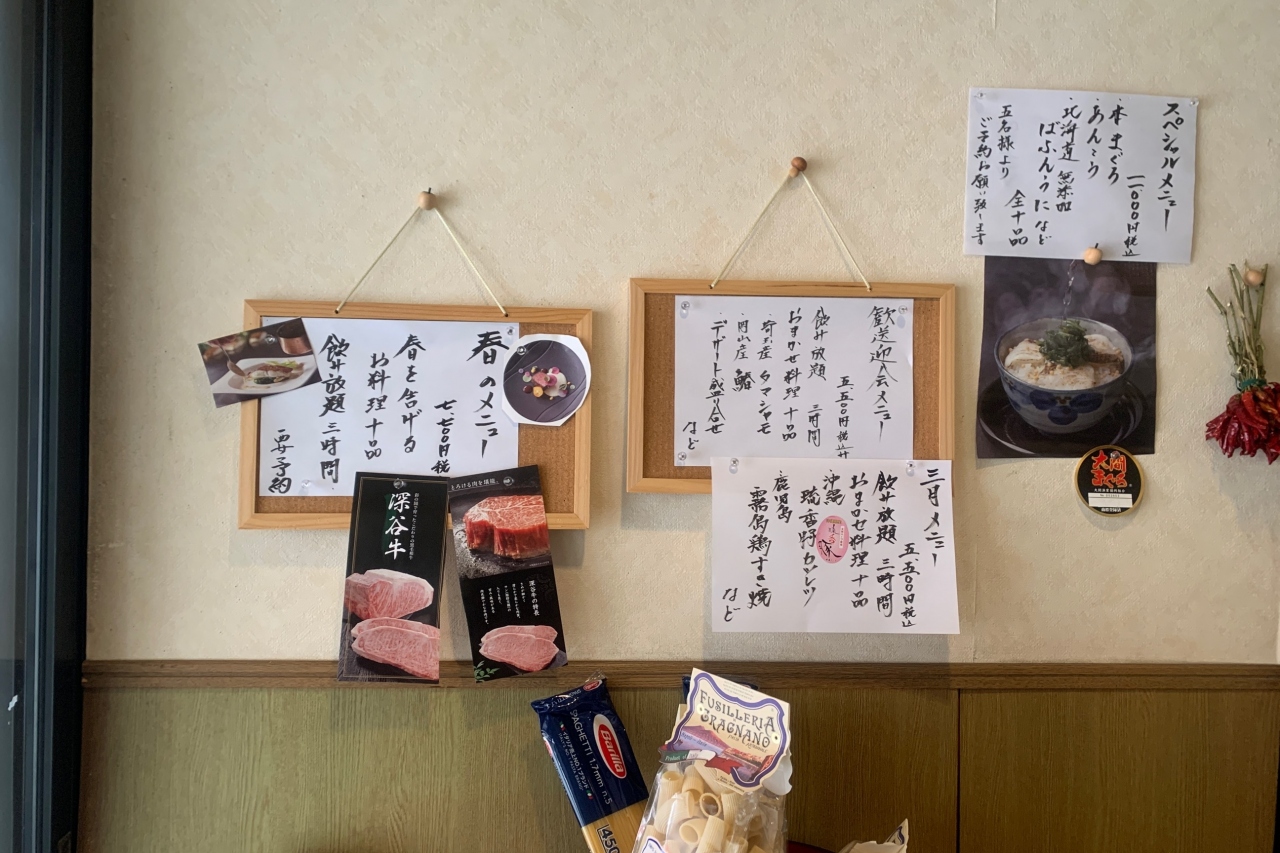 春のメニュー
七、七〇〇円税
春を告げる
お料理十品
飲み放題 三時間
要予約
深谷牛
とろける肉を堪能。
深谷牛の特長
歓送迎会メニュー
五、五〇〇円税込
飲み放題 三時間
おまかせ料理 十品
・埼玉産 タマシャモ
・岡山産 鰆
・デザート盛り合せ
など
三月メニュー
五、五〇〇円税込
飲み放題 三時間
おまかせ料理十品
・沖縄
琉香野カツレツ
・鹿児島
霧島鶏すき焼
など
スペシャルメニュー
一一〇〇〇円税込
・本まぐろ
・あんこう
・北海道 無添加
ばふんうに など
全十品
五名様より
ご予約お願い致します
大間
まぐろ
Barilla
SPAGHETTI 1.7mm n.5
イタリアNo.1ブランド
450
FUSILLERIA
GRAGNANO